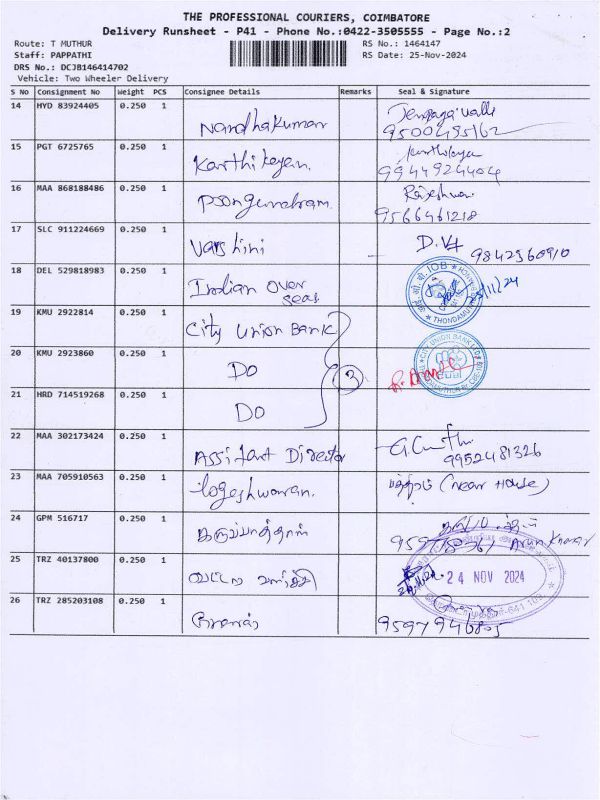 THE PROFESSIONAL COURIERS, COIMBATORE
Delivery Runsheet - P41 - Phone No.:0422-3505555 - Page No.:2
Route: T MUTHUR RS No.: 1464147
Staff: PAPPATHI RS Date: 25-Nov-2024
DRS No.: DCJB146414702
Vehicle: Two Wheeler Delivery
S No Consignment No Weight PCS Consignee Details Remarks Seal & Signature
14 HYD 83924405 0.250 1
Nandhakumar
9500485162
15 PGT 6725765 0.250 1
Karthikeyan.
9944924404
16 MAA 868188486 0.250 1
Rajeshwari
9566461218
17 SLC 911224669 0.250 1
Varshini D.V
9842360910
18 DEL 529818983 0.250 1
IOB
Indian over
seas
25/11/24
19 KMU 2922814 0.250 1
City Union Bank
20 KMU 2923860 0.250 1
CITY UNION BANK LTD
DO 3
21 HRD 714519268 0.250 1
DO
22 MAA 302173424 0.250 1
Assistant Director 9952481326
23 MAA 705910563 0.250 1
Logeshwaran. (near House)
24 GPM 516717 0.250 1
கருப்பாத்தாள்
Arun Kumar
25 TRZ 40137800 0.250 1
24 NOV 2024
26 TRZ 285203108 0.250 1
9597946805